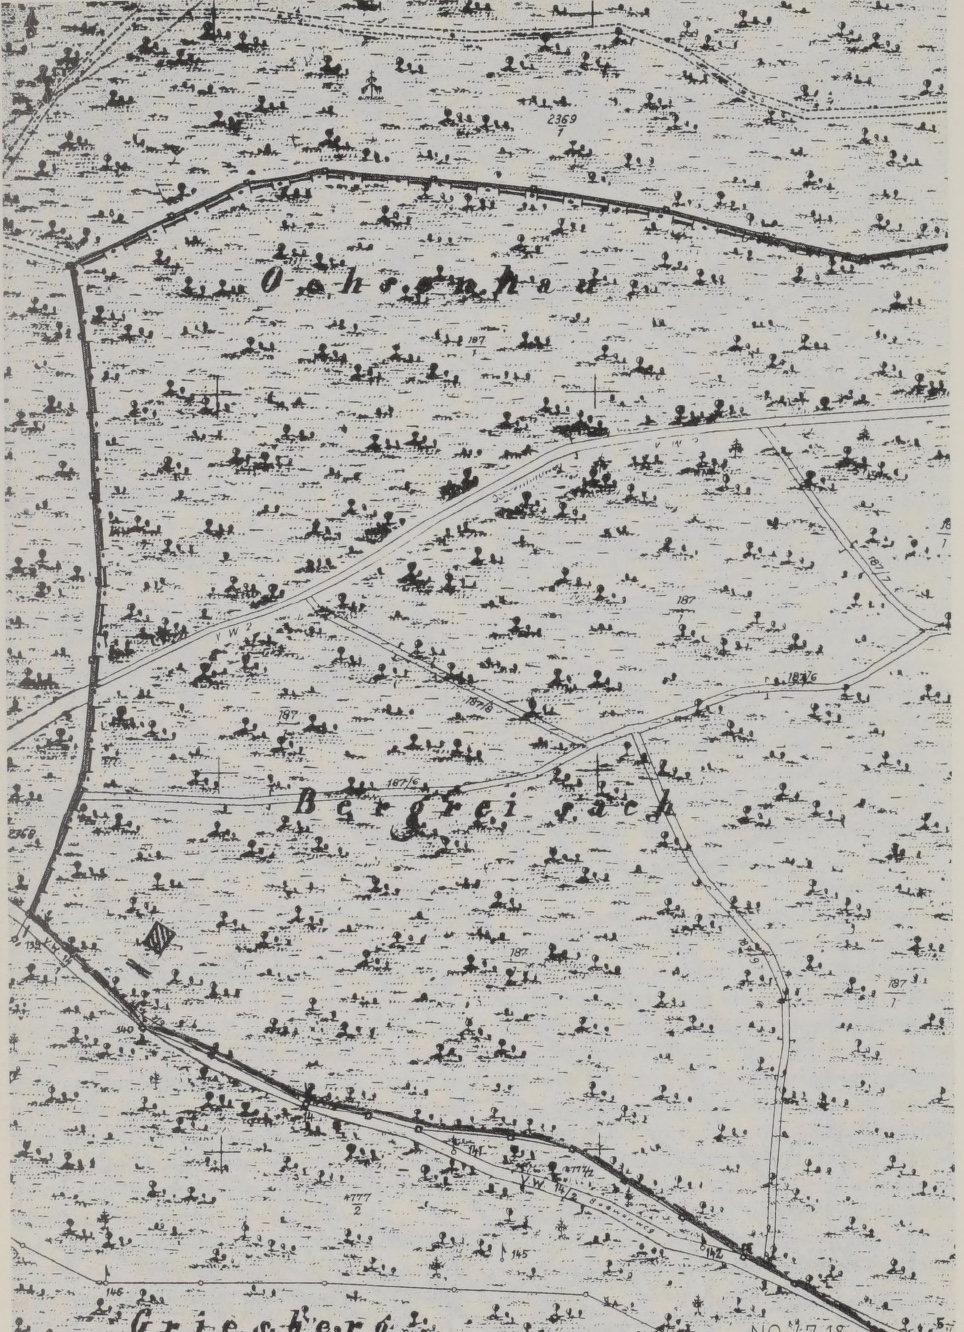 2369
1
Ochsenhau
187
1
V W 2
187/7
187
1
V W 2
187/6
187/8
187
187/6
Bergreisach
2368
139
187
187/9
187
1
140
141
4777/4
V W 14/2
4777
2
142
145
146
Griesberg
NO 17.18